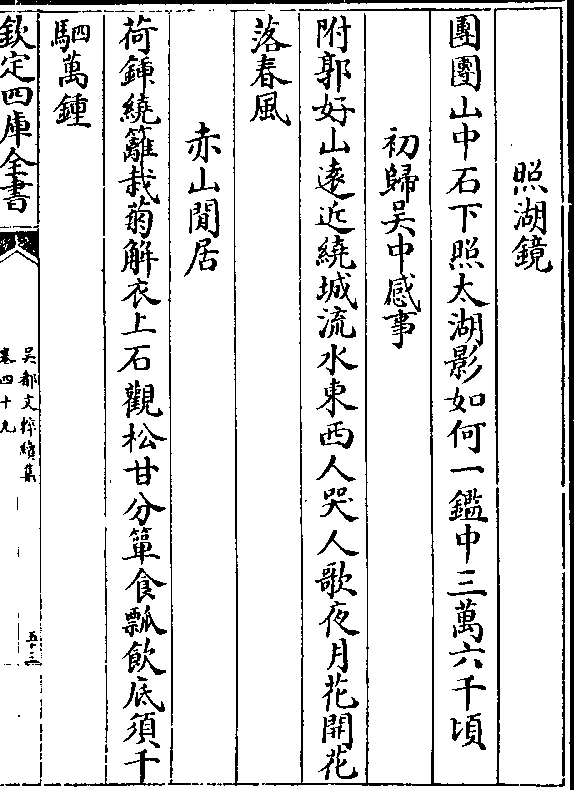 照湖鏡
團團山中石下照太湖影如何一鑑中三萬六千頃
初歸吳中感事
附郭好山遠近繞城流水東西人哭人歌夜月花開花
落春風
赤山閒居
荷鍤繞籬栽菊解衣上石觀松甘分簞食瓢飲底須千
駟萬鍾
欽定四庫全書
吳都文粹續集
卷四十九
五十三